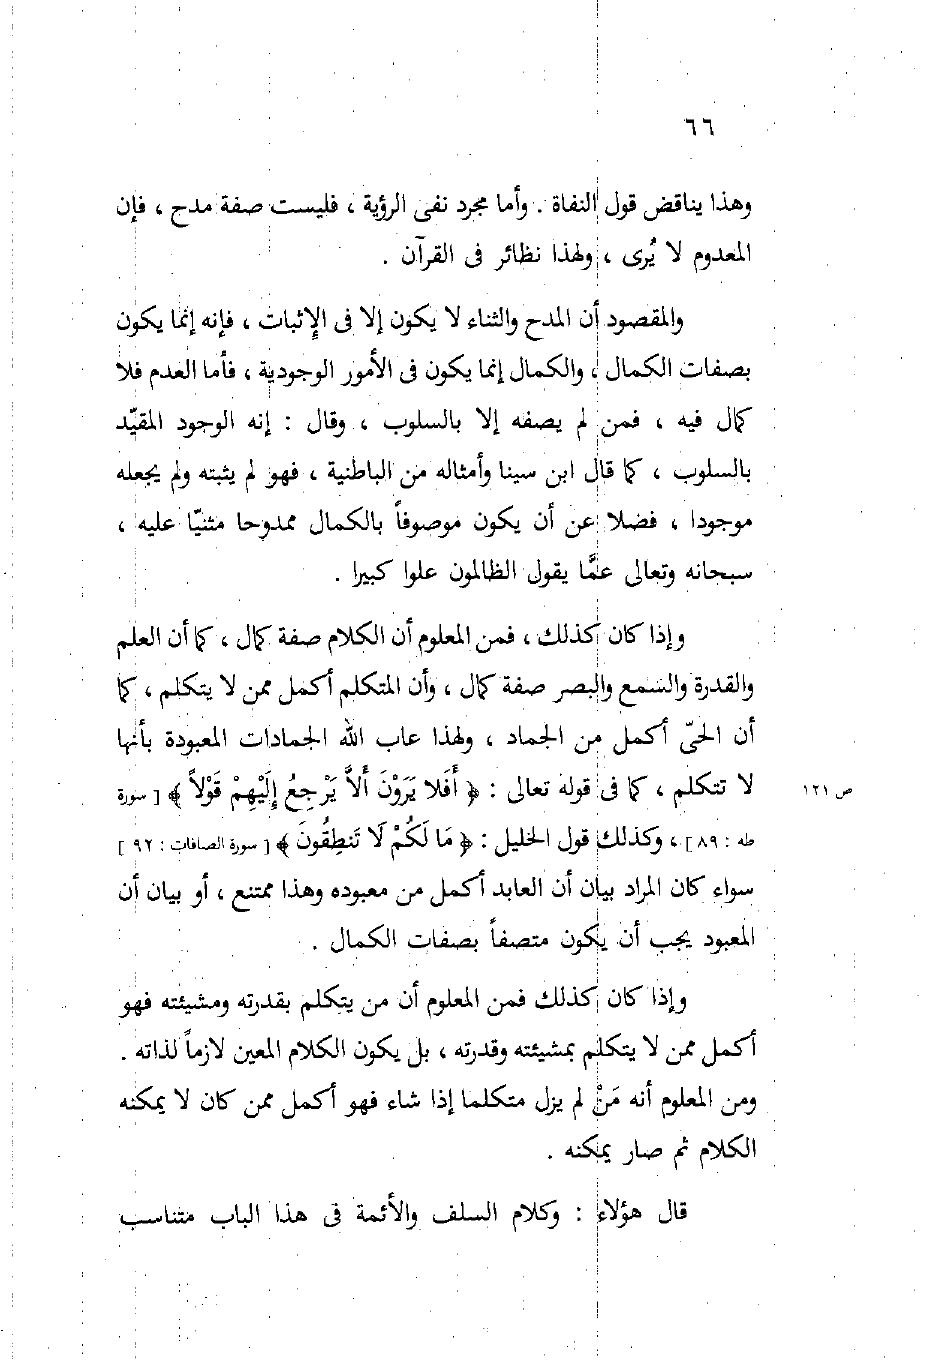 ٦٦
وهذا يناقض قول النفاة . وأما مجرد نفى الرؤية ، فليست صفة مدح ، فإن
المعدوم لا يُرى ، ولهذا نظائر فى القرآن .
والمقصود أن المدح والثناء لا يكون إلا فى الإثبات ، فإنه إنما يكون
بصفات الكمال ، والكمال إنما يكون فى الأمور الوجودية ، فأما العدم فلا
كمال فيه ، فمن لم يصفه إلا بالسلوب ، وقال : إنه الوجود المقيّد
بالسلوب ، كما قال ابن سينا وأمثاله من الباطنية ، فهو لم يثبته ولم يجعله
موجودا ، فضلا عن أن يكون موصوفاً بالكمال ممدوحا مثنيّا عليه ،
سبحانه وتعالى عمَّا يقول الظالمون علوا كبيرا .
وإذا كان كذلك ، فمن المعلوم أن الكلام صفة كمال ، كما أن العلم
والقدرة والسمع والبصر صفة كمال ، وأن المتكلم أكمل ممن لا يتكلم ، كما
أن الحىّ أكمل من الجماد ، ولهذا عاب الله الجمادات المعبودة بأنها
لا تتكلم ، كما فى قوله تعالى : ﴿ أَفَلا يَرَوْنَ أَلاَّ يَرْجِعُ إِلَيْهِمْ قَوْلاً ﴾ [ سورة
ص ١٢١
طه : ٨٩ ] ، وكذلك قول الخليل : ﴿ مَا لَكُمْ لَا تَنطِقُونَ ﴾ [ سورة الصافات : ٩٢ ]
سواء كان المراد بيان أن العابد أكمل من معبوده وهذا ممتنع ، أو بيان أن
المعبود يجب أن يكون متصفاً بصفات الكمال .
وإذا كان كذلك فمن المعلوم أن من يتكلم بقدرته ومشيئته فهو
أكمل ممن لا يتكلم بمشيئته وقدرته ، بل يكون الكلام المعين لازماً لذاته .
ومن المعلوم أنه مَنْ لم يزل متكلما إذا شاء فهو أكمل ممن كان لا يمكنه
الكلام ثم صار يمكنه .
قال هؤلاء : وكلام السلف والأئمة فى هذا الباب متناسب